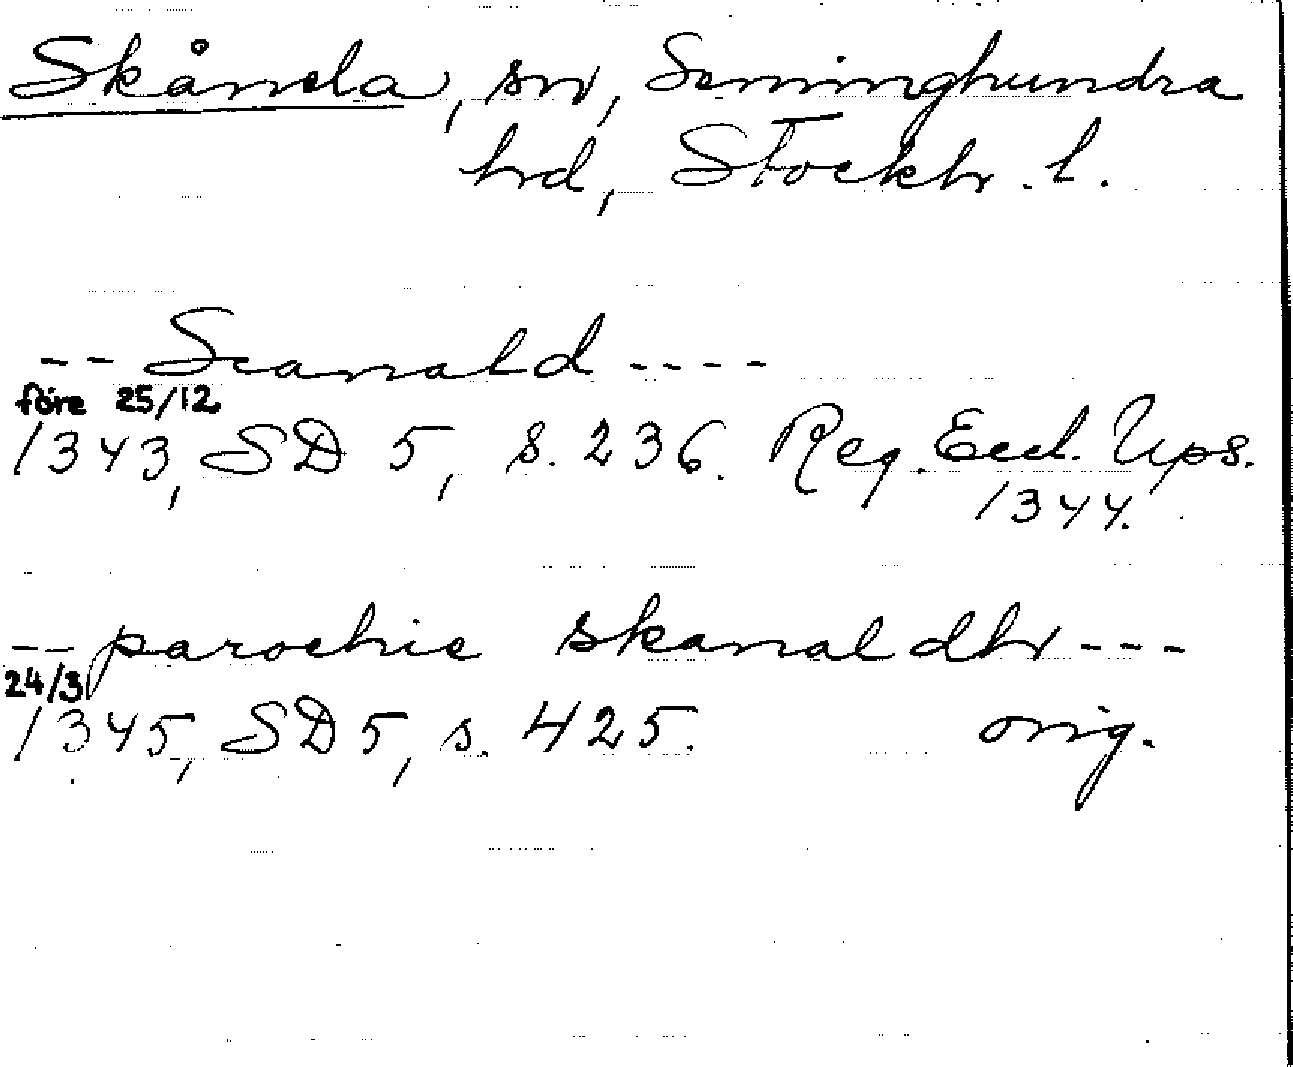 Skånela, sn, Seminghundra
hrd, Stockh. l.
-- Scanald ----
före 25/12
1343, SD 5, s. 236. Reg. Eccl. Ups.
1344.
-- parochie skanaldhr ---
24/3
1345, SD 5, s. 425. orig.